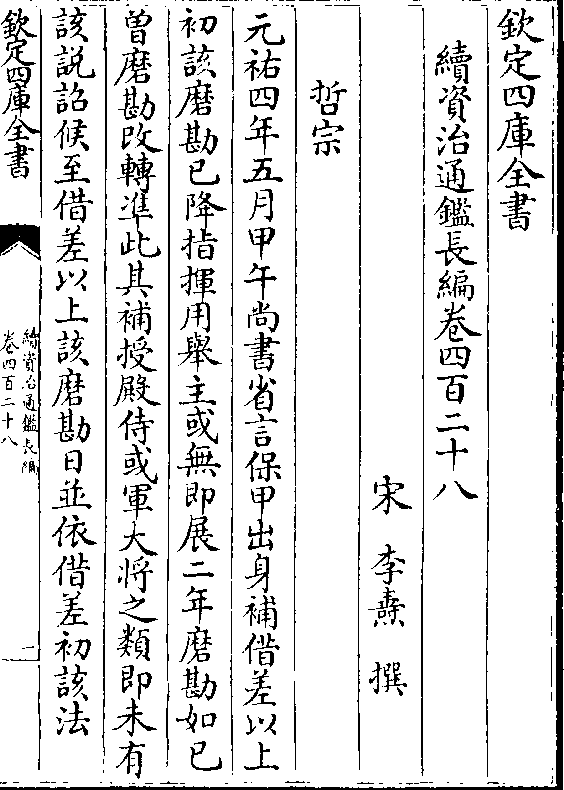 欽定四庫全書
續資治通鑑長編卷四百二十八
宋　李燾　撰
哲宗
元祐四年五月甲午尚書省言保甲出身補借差以上
初該磨勘已降指揮用舉主或無即展二年磨勘如已
曽磨勘改轉準此其補授殿侍或軍大將之類即未有
該説詔候至借差以上該磨勘日並依借差初該法
欽定四庫全書
續資治通鑑長編
卷四百二十八
一